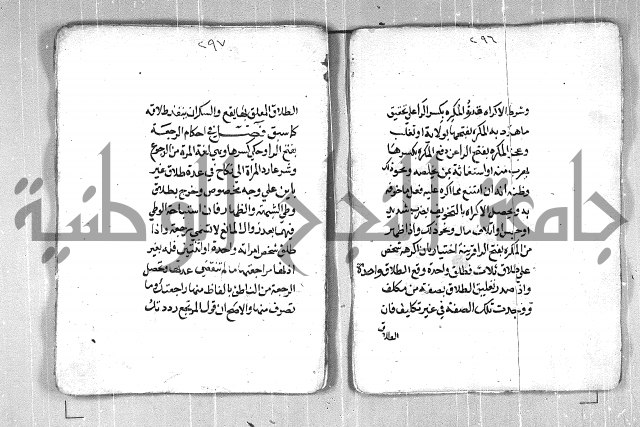 ٢٩٦
وشرط الاكراه قدرة المكره بكسر الراء على تحقيق
ما هدد به المكره بفتحها بولاية او تغلب
وعجز المكره بفتح الراء عن دفع المكره بكسرها
بهرب منه او استغاثة بمن يخلصه ونحو ذلك
وظنه انه ان امتنع مما اكره عليه فعل ما خوفه
به ويحصل الاكراه بالتخويف بضرب شديد
او حبس او اتلاف مال ونحو ذلك واذا ظهر
من المكره بفتح الراء قرينة اختيار بان اكرهه شخص
على طلاق ثلاث فطلق واحدة وقع الطلاق واحدة
واذا صدر تعليق الطلاق بصفة من مكلف
ووجدت تلك الصفة في غير تكليف فان
الطلاق
٢٩٧
الطلاق المعلق بها يقع والسكران ينفذ طلاقه
كما سبق فصل في احكام الرجعة
بفتح الراء وحكي كسرها وهي لغة المرة من الرجوع
وشرعا رد المراة الى نكاح في عدة طلاق غير
باين على وجه مخصوص وخرج بطلاق
وطئ الشبهة والظهار فان استباحة الوطئ
فيهما بعد زوال المانع لا تسمى رجعة واذا
طلق شخص امراته واحدة او اثنتين فله بغير
اذنها مراجعتها ما لم تنقضي عدتها وتحصل
الرجعة من الناطق بالفاظ منها راجعتك وما
تصرف منها والاصح ان قول المرتجع رددتك
جامعة النجاح الوطنية